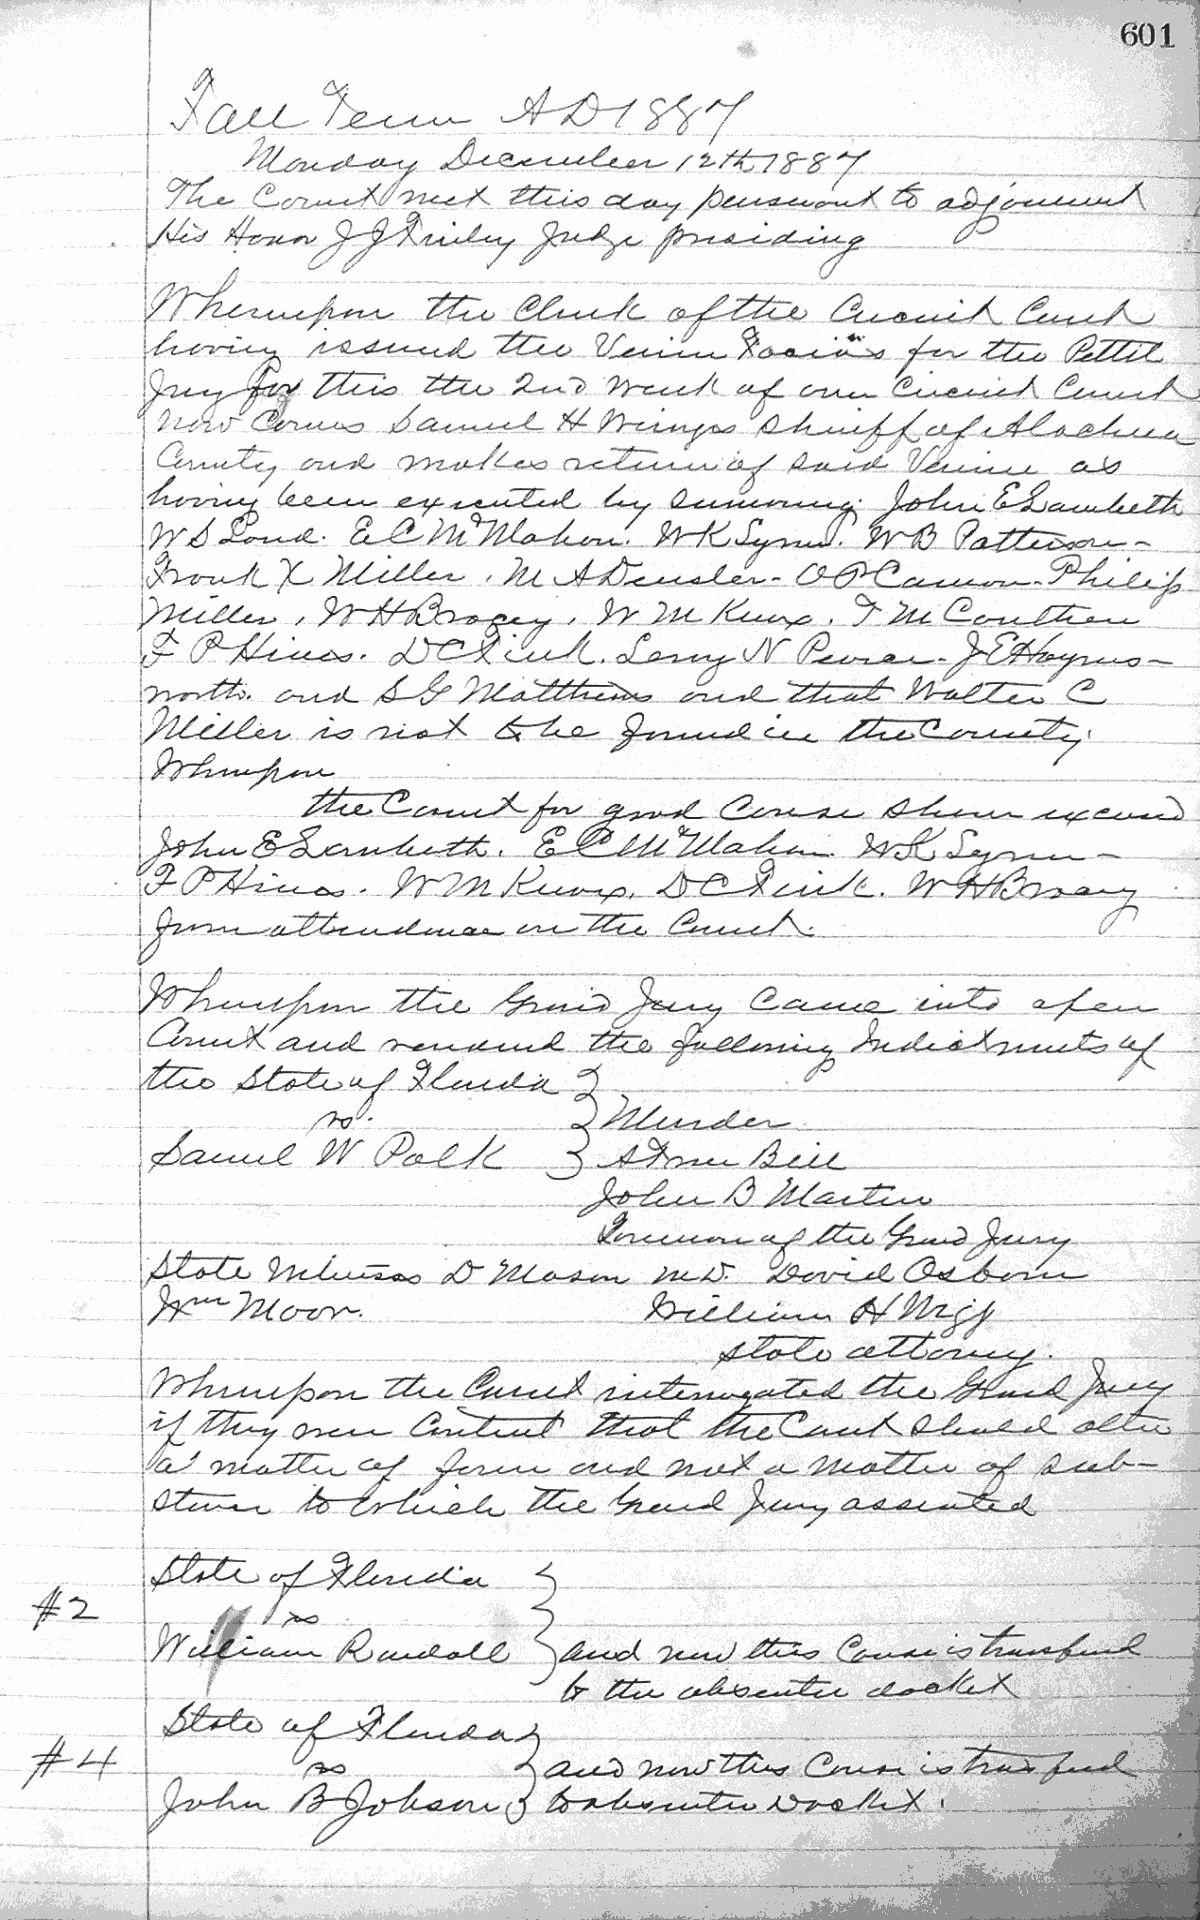 601
Fall Term A D 1887
Monday December 12th 1887
The Court met this day pursuant to adjournment
His Honor J J Finley Judge presiding
Whereupon the Clerk of the Circuit Court
having issued the Venire Facias for the Pettit
Jury for this the 2nd week of our Circuit Court
now Comes Samuel H Wienges Sheriff of Alachua
County and makes return of said Venire as
having been executed by summoning John E Lambeth
W S Lond. E C McMahon. W K Syms. W B Patterson-
Frank X Miller. M A Densler- O P Cannon- Philip
Miller, W H Bracey, W M Knox. T M Coulter
F P Hines. D C Fink. Leroy N Pewar- J E Hayns-
worth. and S G Matthews and that Walter C
Miller is not to be found in the County.
Whereupon
the Court for good Cause shown excused
John E Lambeth. E C McMahon. W K Syms-
F P Hines. W M Knox. D C Fink. W H Bracey
from attendance on the Court.
Whereupon the Grand Jury Came into open
Court and rendered the following Indictments of
the State of Florida
vs.
Murder
Samuel W Polk
A True Bill
John B Martin
Foreman of the Grand Jury
State Witnesses D Mason M.D. David Osborn
Wm Moor.
William H Wigg
State attorney.
Whereupon the Court interrogated the Grand Jury
if they were Content that the Court should alter
a matter of form and not a matter of sub-
stance to which the Grand Jury assented
State of Florida
#2
vs
William Randall
and now this Cause is transferred
to the absentee docket
State of Florida
#4
vs
and now this Cause is transferred
John B Jobson
to absentee Docket.